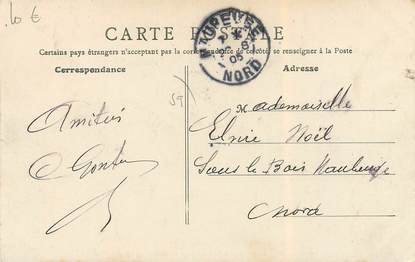 10 €
CARTE POSTALE
Certains pays étrangers n'acceptant pas la correspondance de ce côté se renseigner à la Poste
MAUBEUGE
05
NORD
Correspondance
Adresse
59
Amitiés
Mademoiselle
Elvire Noël
Sous le Bois Maubeuge
Nord